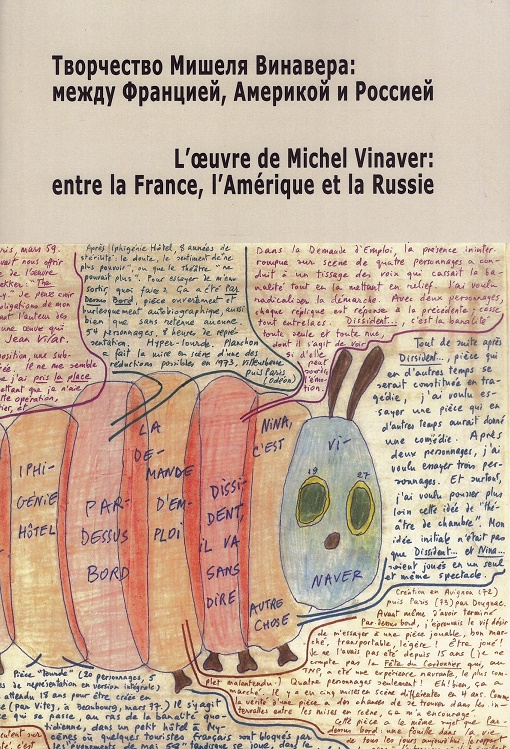 Творчество Мишеля Винавера:
между Францией, Америкой и Россией
L'œuvre de Michel Vinaver:
entre la France, l'Amérique et la Russie
mars 59.
nous offrir
de l'œuvre
The
Je peux avoir
de mon
l'auteur des
une œuvre qui
Jean Vilar.
une sub-
Il ne me semble
j'ai pris la place
que je n'aie
opération,
et
Après Iphigénie Hôtel, 8 années de
stérilité: le doute, le sentiment de "ne
plus pouvoir", ou que le théâtre "ne
pouvait plus". Pour essayer de m'en
sortir, que faire? Ça a été Par
dessus bord, pièce ouvertement et
burlesquement autobiographique, aussi
bien que sans retenue aucune.
54 personnages, 8 heures de repré-
sentation. Hyper-lourde. Planchon
a fait la mise en scène d'une des
réductions possibles en 1973, Villeurbanne
puis Paris
(Odéon)
Dans la Demande d'Emploi, la présence ininter-
rompue sur scène de quatre personnages a con-
duit à un tissage des voix qui cassait la ba-
nalité tout en la mettant en relief. J'ai voulu
radicaliser la démarche. Avec deux personnages,
chaque réplique est réponse à la précédente: cesse
tout entrelacs. Dissident..., c'est la banalité
toute seule et toute nue,
dont il s'agit de voir
si d'elle
peut
sourdre
l'émo-
tion.
Tout de suite après
Dissident..., pièce qui
en d'autres temps se
serait constituée en tra-
gédie, j'ai voulu es-
sayer une pièce qui en
d'autres temps aurait donné
une comédie. Après
deux personnages, j'ai
voulu essayer trois per-
sonnages. Et surtout,
j'ai voulu pousser plus
loin cette idée de "thé-
âtre de chambre". Mon
idée initiale n'était pas
que Dissident... et Nina...
soient joués en un seul
et même spectacle.
IPHI-
GÉNIE
HÔTEL
PAR-
DESSUS
BORD
LA
DE-
MANDE
D'EM-
PLOI
DISSI-
DENT,
IL VA
SANS
DIRE
NINA,
C'EST
AUTRE
CHOSE
VI-
19 27
NAVER
Création en Avignon (72)
puis Paris (73) par Dougnac.
Avant même d'avoir terminé
Par-dessus bord, j'éprouvais le vif désir
de m'essayer à une pièce jouable, bon mar-
ché, transportable, légère! Être joué!
Je ne l'avais pas été depuis 15 ans (je ne
compte pas la Fête du Cordonnier qui, au
TNP, a été une expérience navrante, le plus com-
plet malentendu.) Quatre personnages seulement! Eh bien, ça a
marché. Il y a eu cinq mises en scène différentes en 4 ans. Comme
la vérité d'une pièce a des chances de se trouver dans les in-
tervalles entre les mises en scène, ça m'a encouragé.
Cette pièce a le même sujet que Par-
dessus bord: une fouille dans la vie
de tous les jours aujourd'hui, le rapport
Pièce "lourde" (20 personnages, 5
de représentation en version intégrale)
attendu 18 ans pour être créée en
(par Vitez, à Beaubourg, mars 77.) Il s'y agit
qui se passe, au ras de la banalité quo-
tidienne, dans un petit hôtel à My-
cènes où quelques touristes français sont bloqués par
les "événements de mai 58" tandis que se joue, dans le